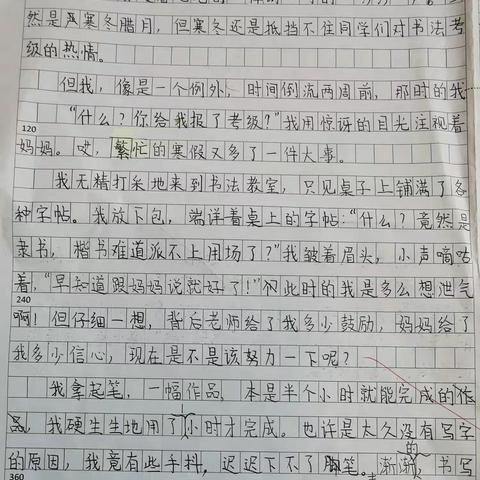 然是严寒冬腊月，但寒冬还是抵挡不住同学们对书法考
级的热情。
但我，像是一个例外，时间倒流两周前，那时的我
“什么？你给我报了考级？”我用惊讶的目光注视着
120
妈妈。哎，繁忙的寒假又多了一件大事。
我无精打采地来到书法教室，只见桌子上铺满了各
种字帖。我放下包，端详着桌上的字帖：“什么？竟然是
隶书，楷书难道派不上用场了？”我皱着眉头，小声嘀咕
着，“早知道跟妈妈说就好了！”此时的我是多么想泄气
240
啊！但仔细一想，背后老师给了我多少鼓励，妈妈给了
我多少信心，现在是不是该努力一下呢？
我拿起笔，一幅作品，本是半个小时就能完成的作
品，我硬生生地用了小时才完成。也许是太久没有写字
的原因，我竟有些手抖，迟迟下不了笔。渐渐的，书写
360